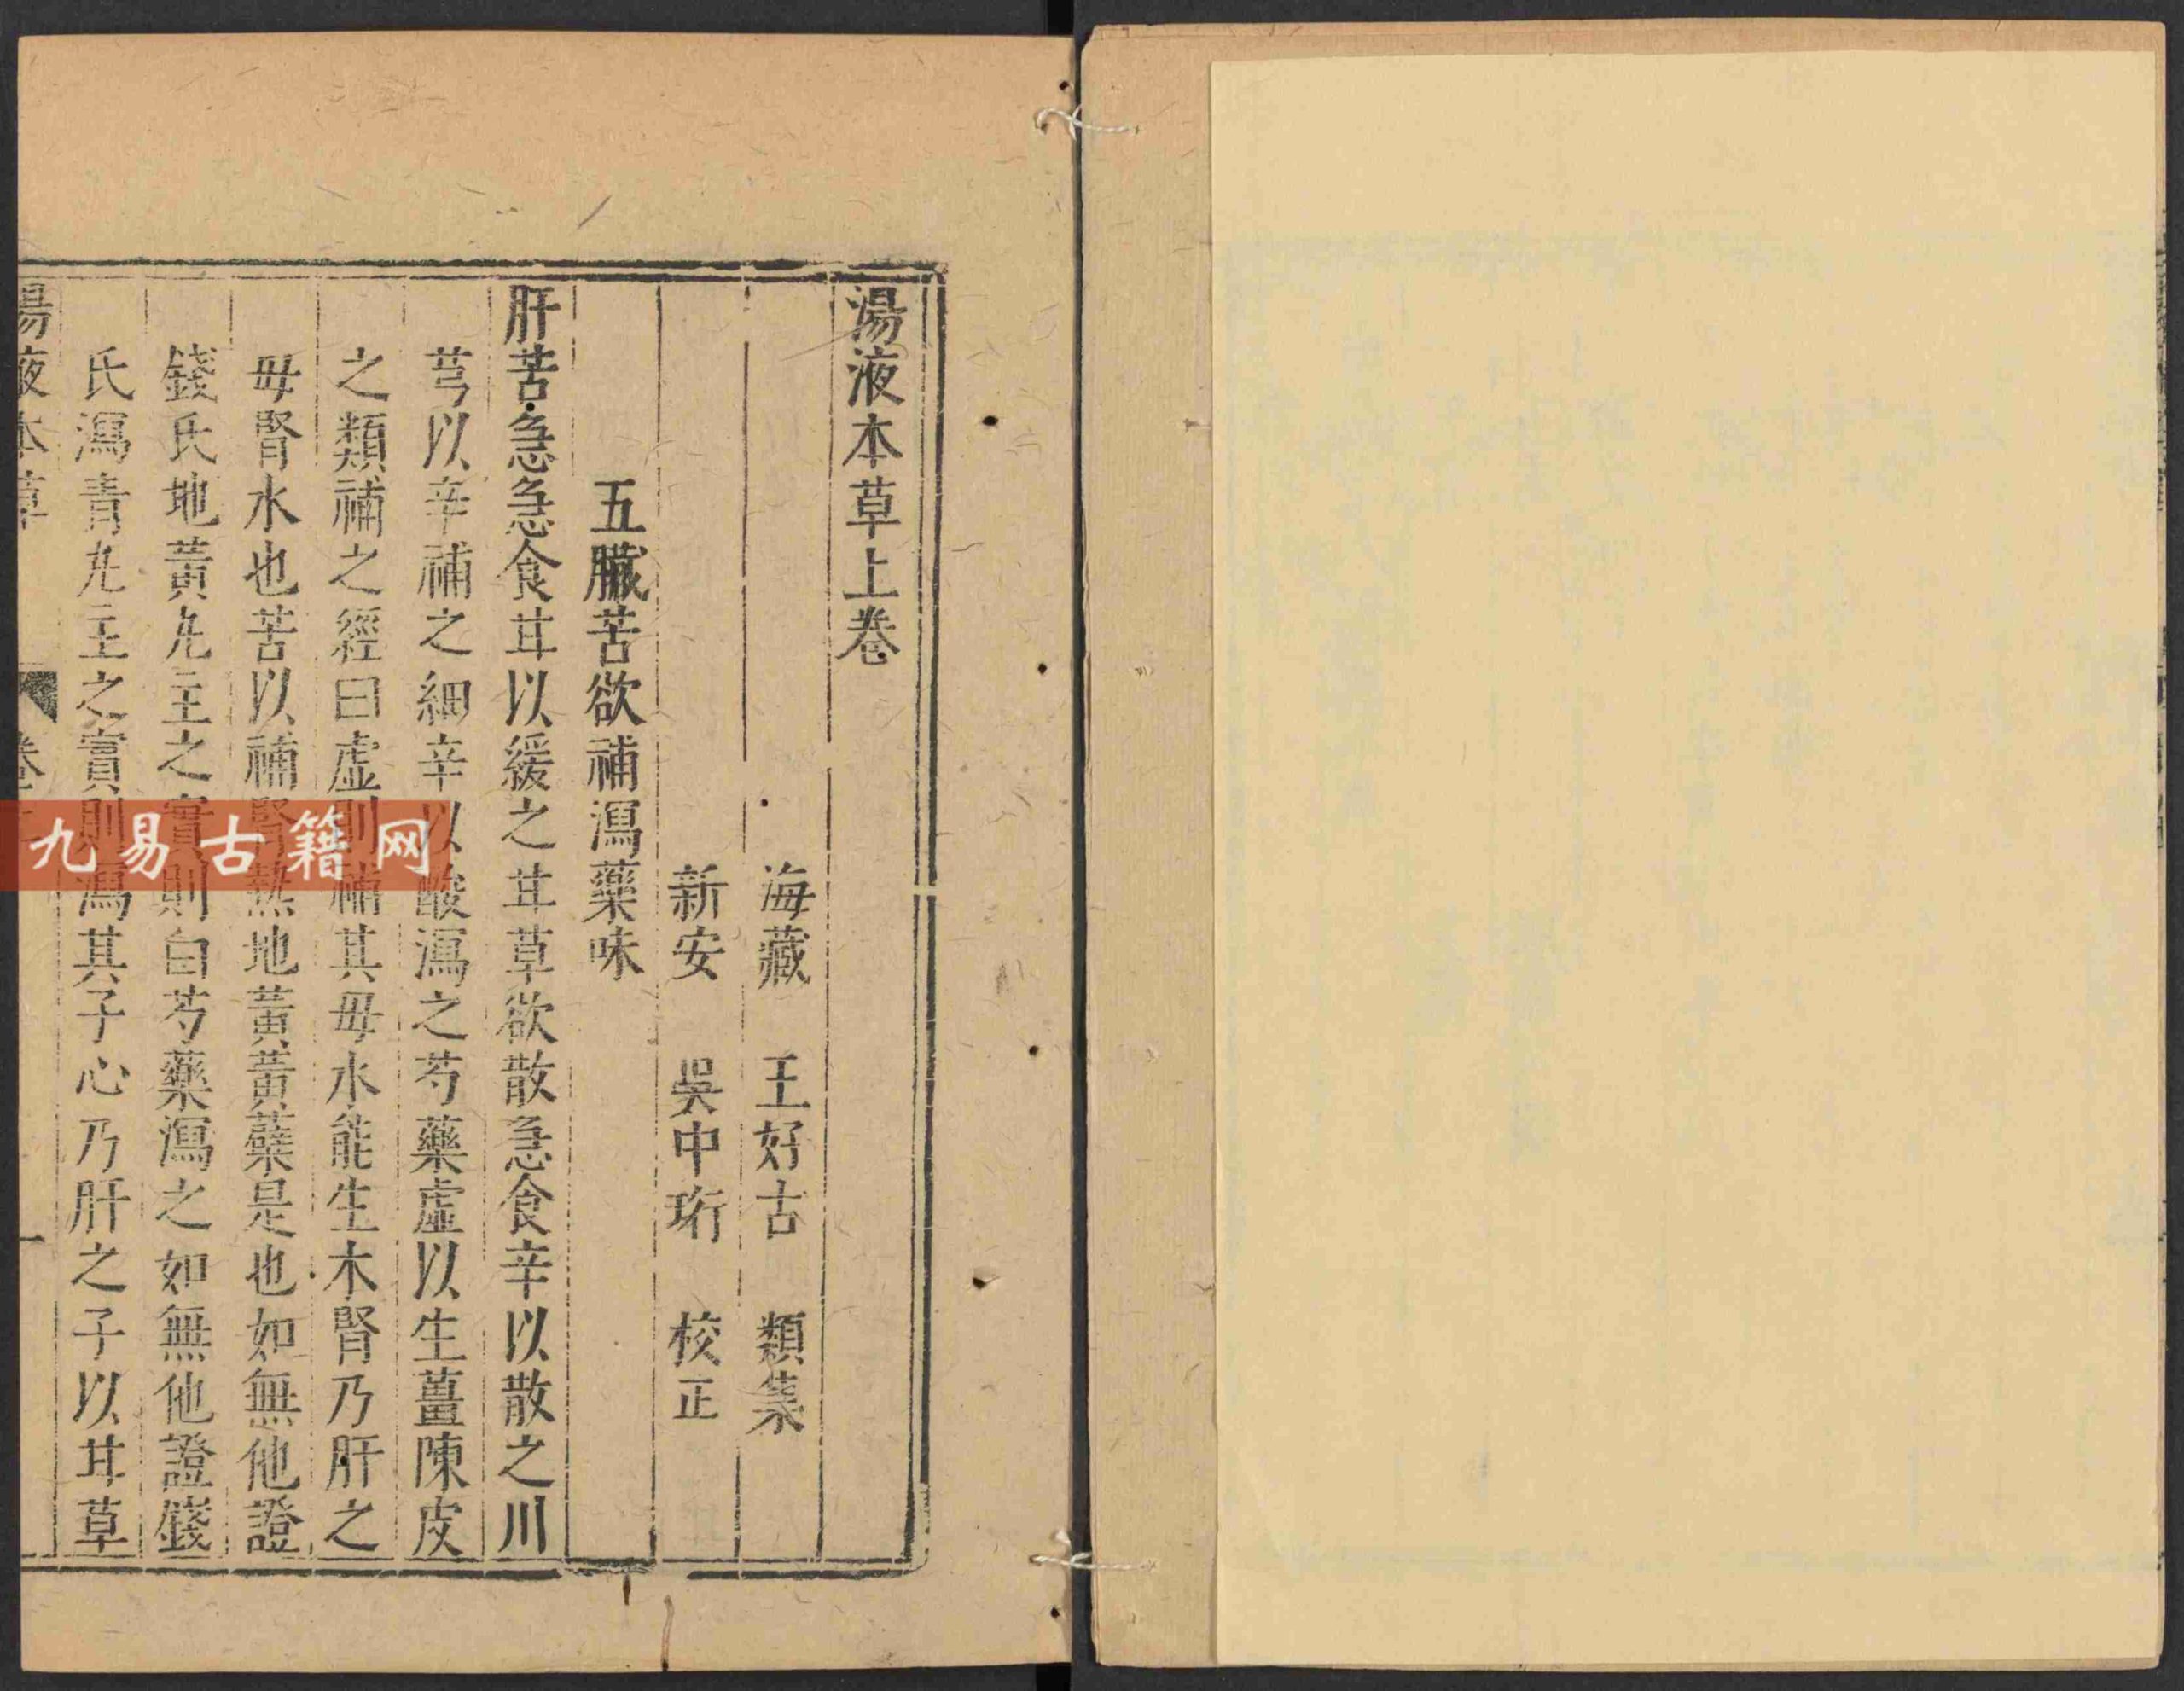 湯液本草上卷
海藏 王好古 類集
新安 吳中珩 校正
五臟苦欲補瀉藥味
肝苦急急食甘以緩之甘草欲散急食辛以散之川
芎以辛補之細辛以酸瀉之芍藥虛以生薑陳皮
之類補之經曰虛則補其母水能生木腎乃肝之
母腎水也苦以補腎熟地黃黃蘗是也如無他證
錢氏地黃丸主之實則白芍藥瀉之如無他證錢
氏瀉青丸主之實則瀉其子心乃肝之子以甘草
湯液本草 卷上 一
九易古籍网